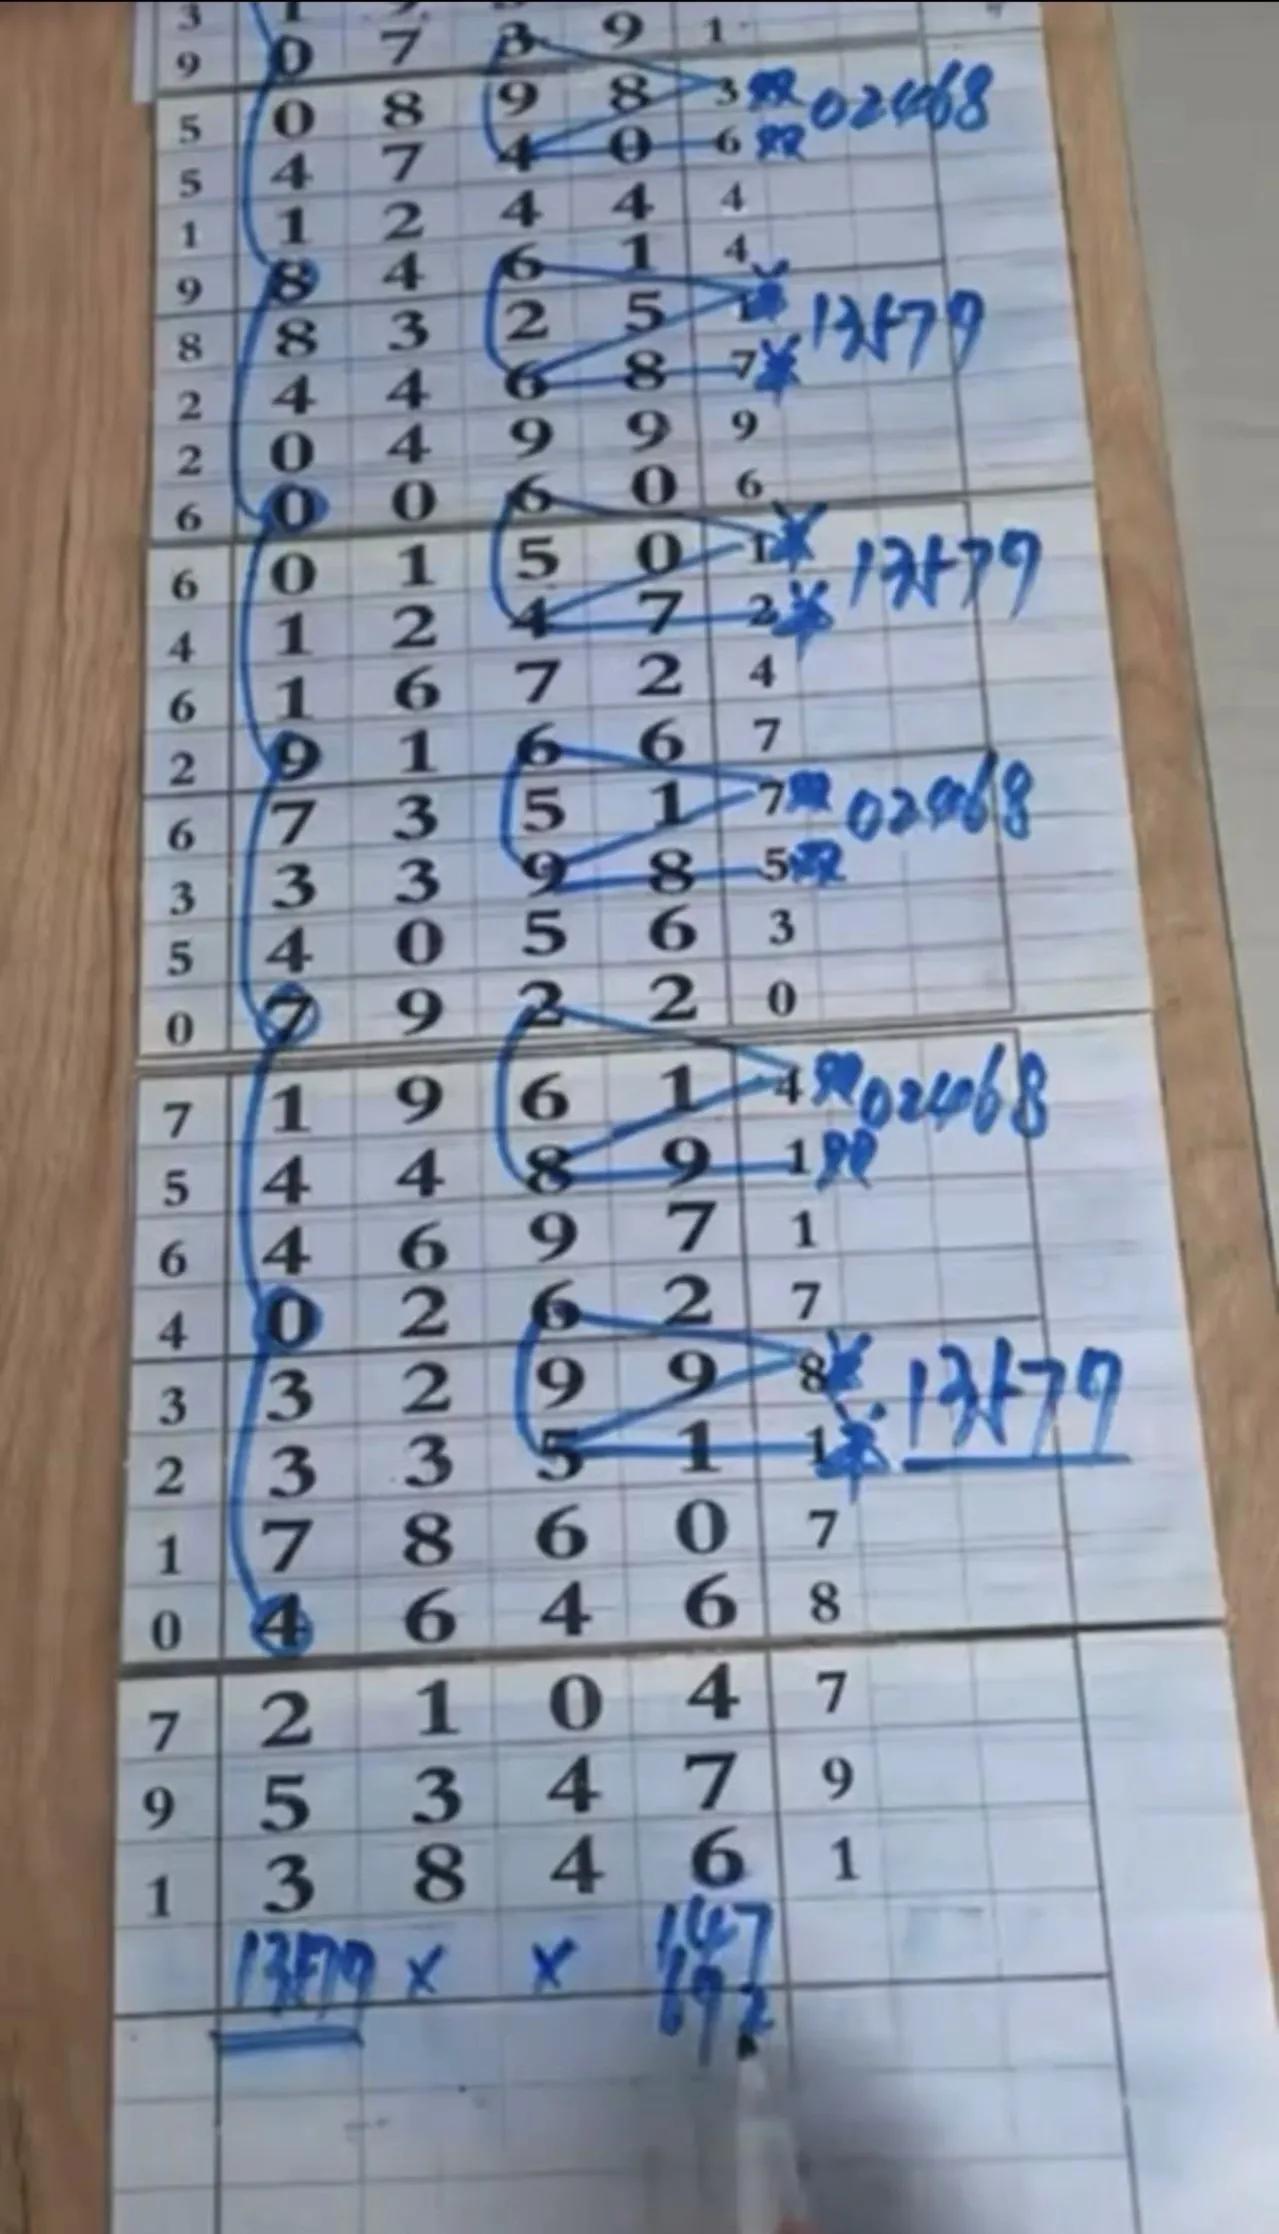 3 1
9 0 7 3 9 1
5 0 8 9 8 3 双 02468
5 4 7 4 0 6 双
1 1 2 4 4 4
9 8 4 6 1 4
8 8 3 2 5 1 单 13579
2 4 4 6 8 7 单
2 0 4 9 9 9
6 0 0 6 0 6
6 0 1 5 0 1 单 13579
4 1 2 4 7 2 单
6 1 6 7 2 4
2 9 1 6 6 7
6 7 3 5 1 7 双 02468
3 3 3 9 8 5 双
5 4 0 5 6 3
0 7 9 2 2 0
7 1 9 6 1 4 双 02468
5 4 4 8 9 1 双
6 4 6 9 7 1
4 0 2 6 2 7
3 3 2 9 9 8 单 13579
2 3 3 5 1 1 单
1 7 8 6 0 7
0 4 6 4 6 8
7 2 1 0 4 7
9 5 3 4 7 9
1 3 8 4 6 1
13579 × × 147
692